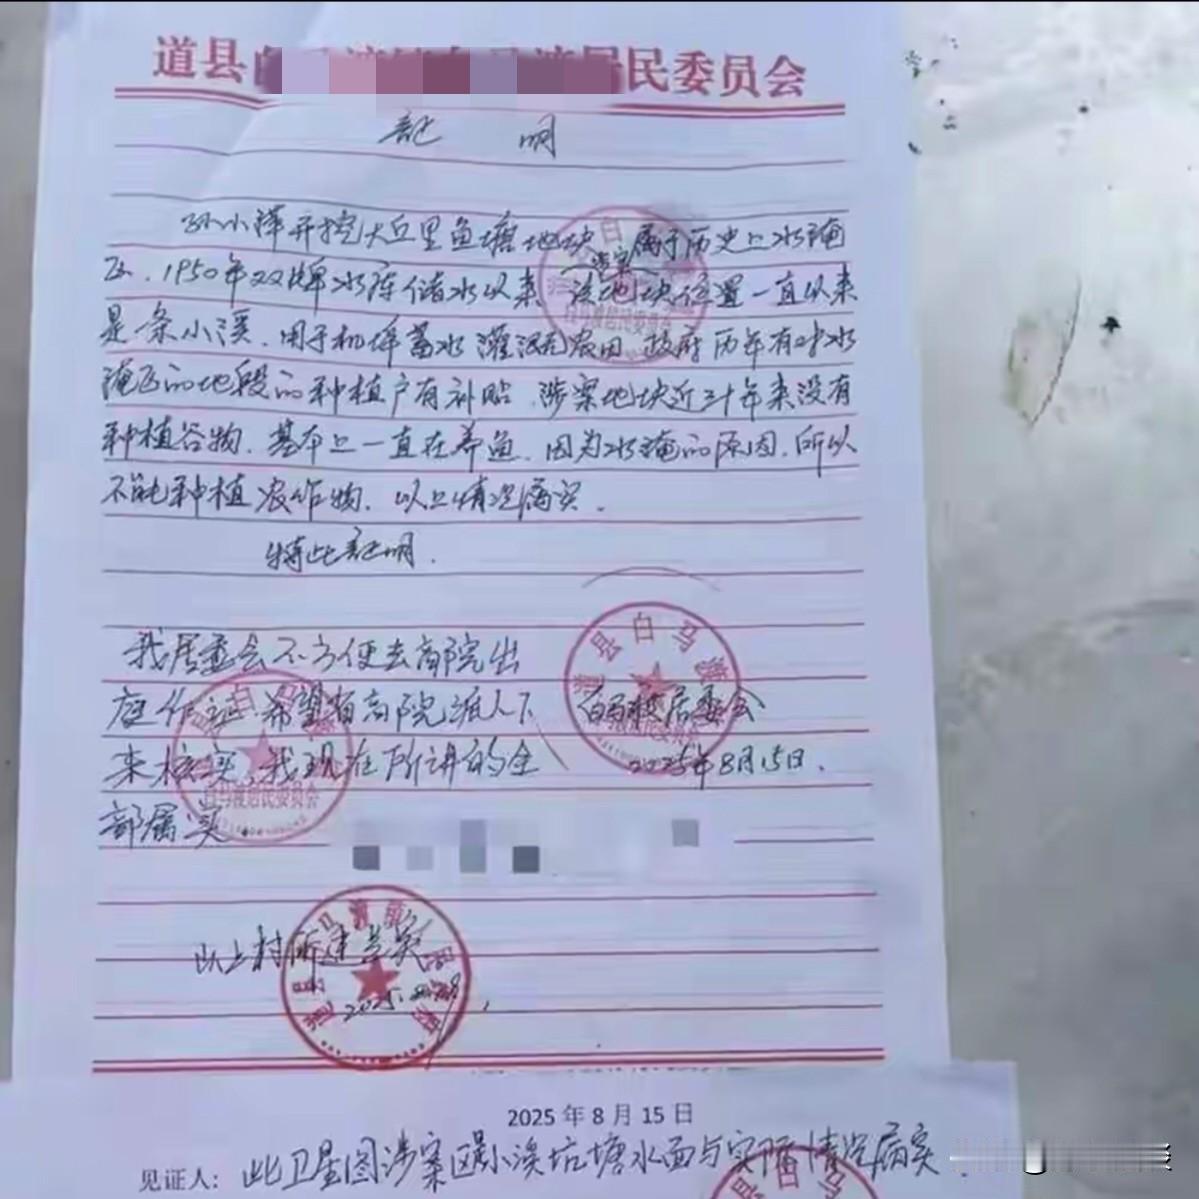 道县 民委员会
证 明
孙小萍开挖大丘里鱼塘地块 属于历史上水淹
区.1950年双牌水库储水以来 该地块位置一直以来
涉案
是一条小溪.用于机埠蓄水灌溉农田.政府历年有对水
淹区的地段的种植户有补贴.涉案地块近三十年来没有
种植谷物.基本上一直在养鱼.因为水淹的原因.所以
不能种植农作物.以上情况属实.
特此证明.
我居委会不方便去高院出
庭作证 希望省高院派人下
来核实,我现在所讲的全
部属实
白马渡居委会
2025年8月15日.
道县白马渡
白马渡居民委员会
以上村所述属实
2025.
2025 年 8 月 15 日
见证人: 此卫星图涉案区是小溪坑塘水面与实际情况属实